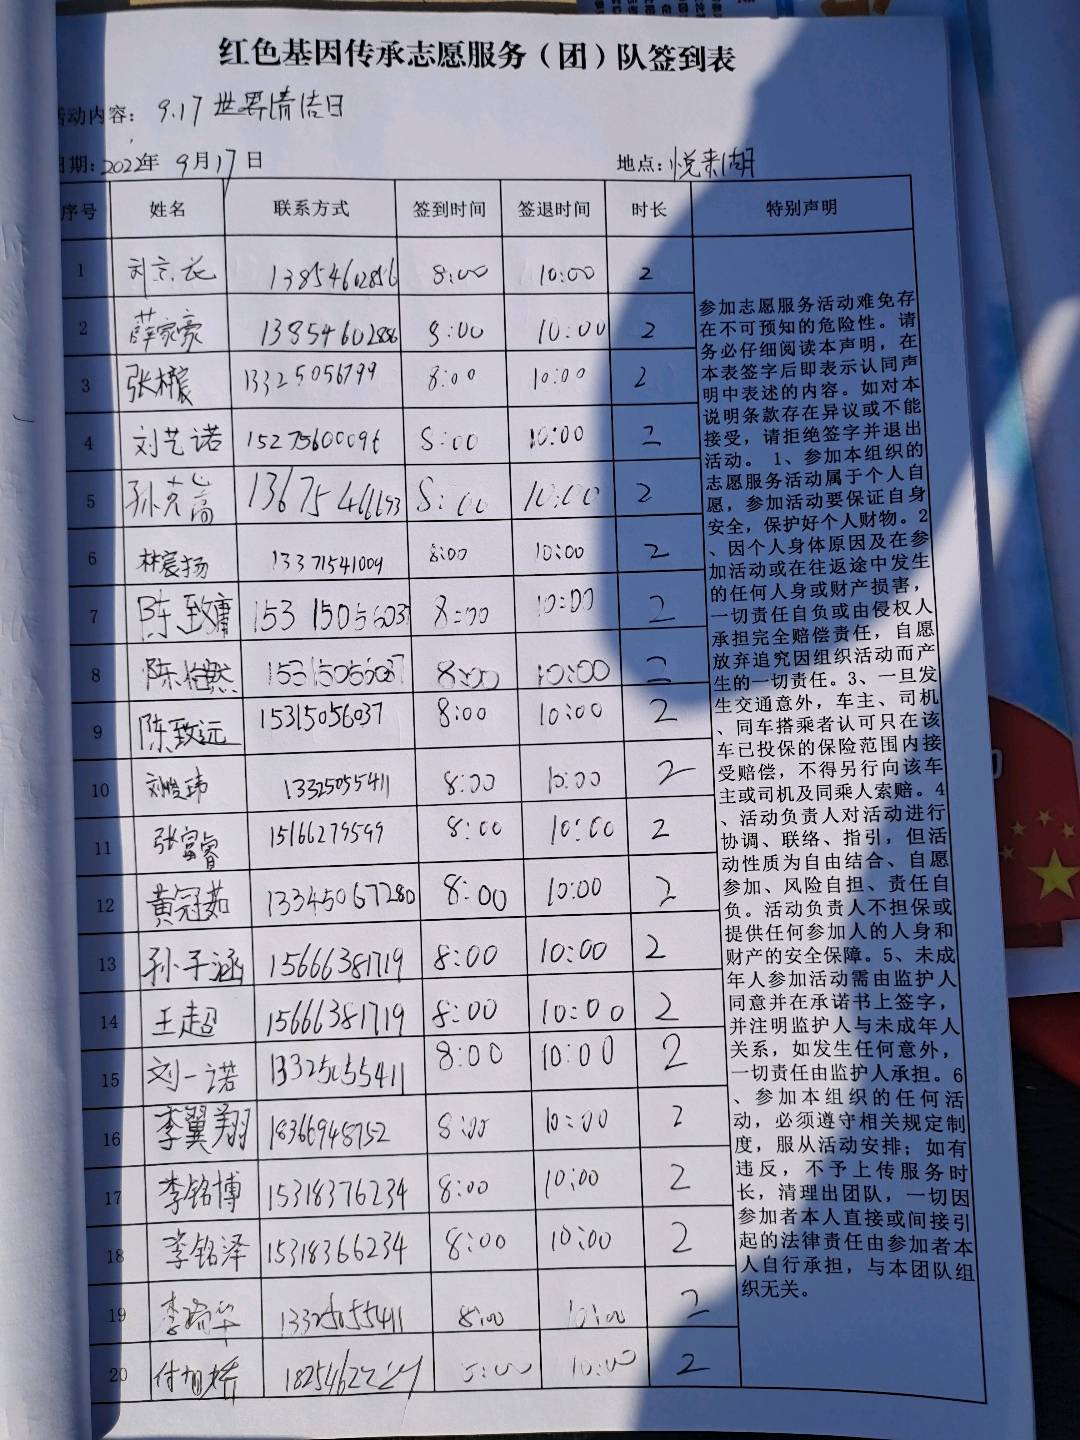 红色基因传承志愿服务（团）队签到表
活动内容：9.17 世界清洁日
日期：2022年 9月17日 地点：悦来湖
序号 姓名 联系方式 签到时间 签退时间 时长 特别声明
1 13854602856 8:00 10:00 2
2 薛家豪 13854602886 8:00 10:00 2
3 张宸 13325056799 8:00 10:00 2
4 刘艺诺 15275600096 8:00 10:00 2
5 8:00 10:00 2
6 林宸扬 13371541009 8:00 10:00 2
7 陈致庸 15315056037 8:00 10:00 2
8 陈怡然 15315056037 8:00 10:00 2
9 陈致远 15315056037 8:00 10:00 2
10 13325055411 8:00 10:00 2
11 张富睿 15166279599 8:00 10:00 2
12 黄冠茹 13345067280 8:00 10:00 2
13 孙子涵 15666381719 8:00 10:00 2
14 王超 15666381719 8:00 10:00 2
15 刘一诺 13325055411 8:00 10:00 2
16 李翼翔 18366948752 8:00 10:00 2
17 李铭博 15318376234 8:00 10:00 2
18 李铭泽 15318366234 8:00 10:00 2
19 13325055411 8:00 10:00 2
20 10:00 2
参加志愿服务活动难免存
在不可预知的危险性。请
务必仔细阅读本声明，在
本表签字后即表示认同声
明中表述的内容。如对本
说明条款存在异议或不能
接受，请拒绝签字并退出
活动。 1、参加本组织的
志愿服务活动属于个人自
愿，参加活动要保证自身
安全，保护好个人财物。2
、因个人身体原因及在参
加活动或在往返途中发生
的任何人身或财产损害，
一切责任自负或由侵权人
承担完全赔偿责任，自愿
放弃追究因组织活动而产
生的一切责任。3、一旦发
生交通意外，车主、司机
、同车搭乘者认可只在该
车已投保的保险范围内接
受赔偿，不得另行向该车
主或司机及同乘人索赔。4
、活动负责人对活动进行
协调、联络、指引，但活
动性质为自由结合、自愿
参加、风险自担、责任自
负。活动负责人不担保或
提供任何参加人的人身和
财产的安全保障。5、未成
年人参加活动需由监护人
同意并在承诺书上签字，
并注明监护人与未成年人
关系，如发生任何意外，
一切责任由监护人承担。6
、参加本组织的任何活
动，必须遵守相关规定制
度，服从活动安排；如有
违反，不予上传服务时
长，清理出团队，一切因
参加者本人直接或间接引
起的法律责任由参加者本
人自行承担，与本团队组
织无关。